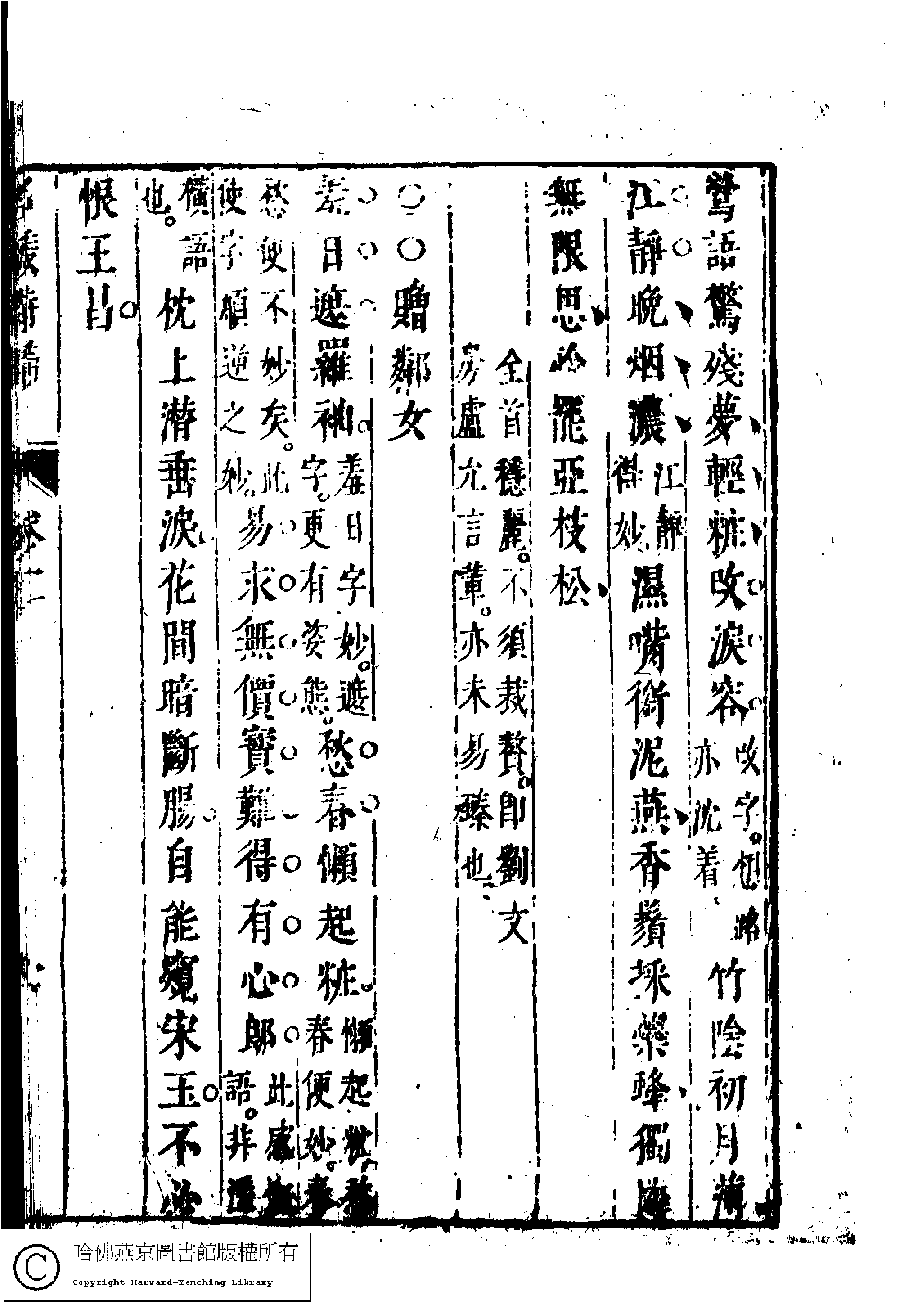 鶯語驚殘夢輕粧改淚容改字。想路亦沈着竹陰初月薄
江靜晚烟濃江靜得妙濕嘴銜泥燕香鬚採蘂蜂獨憐
無限思吟罷亞枝松
全首穩麗。不須裁贅。即劉文
房盧允言輩。亦未易臻也
○○贈鄰女
羞日遮羅袖羞日字妙。遮字。更有姿態。愁春懶起粧懶起粧愁春便妙。春
愁便不妙矣。此使字順逆之妙。易求無價寶難得有心郎此感慨語。非
橫語也。枕上潛垂淚花間暗斷腸自能窺宋玉不必
恨王昌
名媛詩歸 卷十一
哈佛燕京圖書館版權所有
Copyright Harvard-Yenching Library